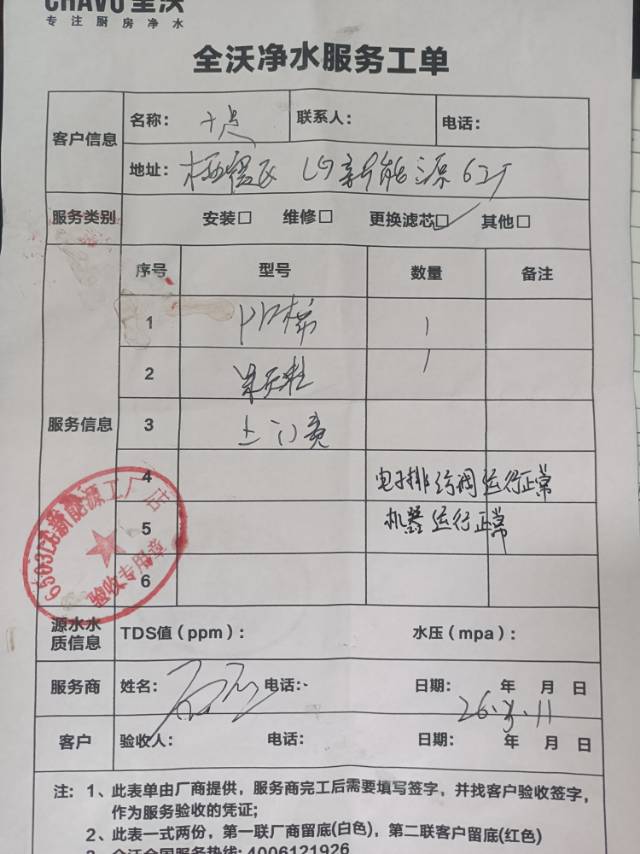 CHAVO 全沃
专注厨房净水
全沃净水服务工单
客户信息
名称: 十点
联系人:
电话:
地址: LG新能源62厂
服务类别 安装□ 维修□ 更换滤芯□✓ 其他□
服务信息
序号 型号 数量 备注
1 PP棉 1
2 1
3 上门费
4 电子排污阀运行正常
5 机器运行正常
6
新能源工厂
验收专用章
源水水质信息 TDS值(ppm): 水压(mpa):
服务商 姓名: 电话:- 日期: 年 月 日
客户 验收人: 电话: 日期: 年 月 日
注: 1、此表单由厂商提供，服务商完工后需要填写签字，并找客户验收签字，
作为服务验收的凭证;
2、此表一式两份，第一联厂商留底(白色)，第二联客户留底(红色)
3、全沃全国服务热线: 4006121926